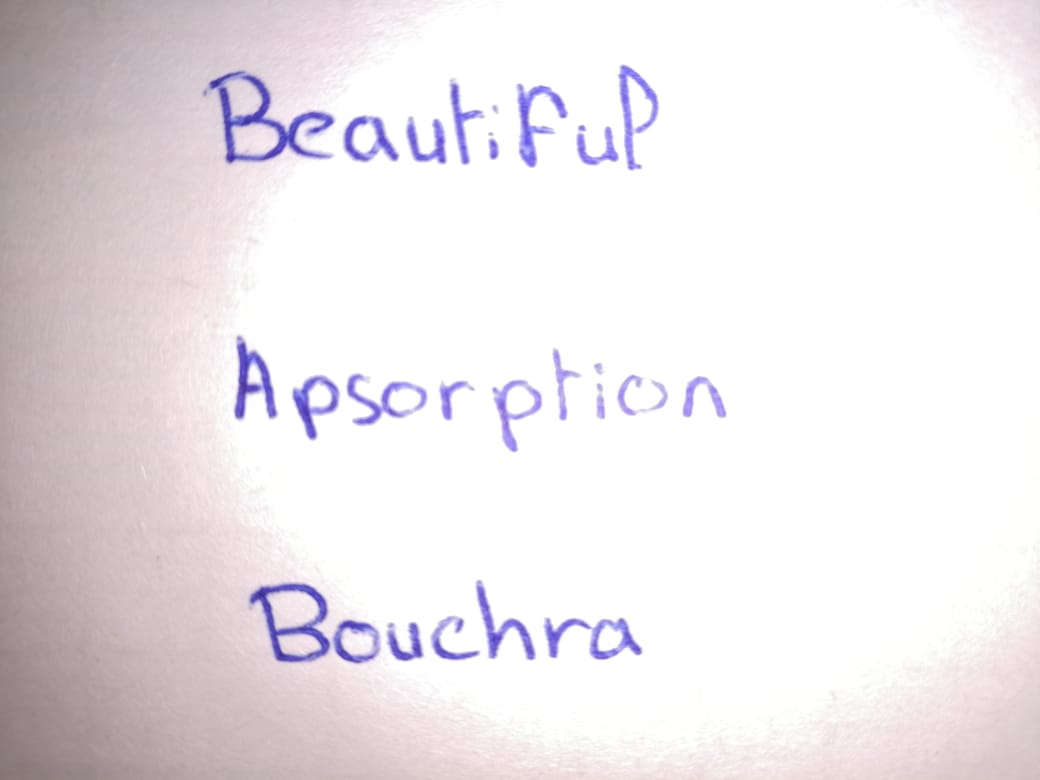 Beautiful
Apsorption
Bouchra